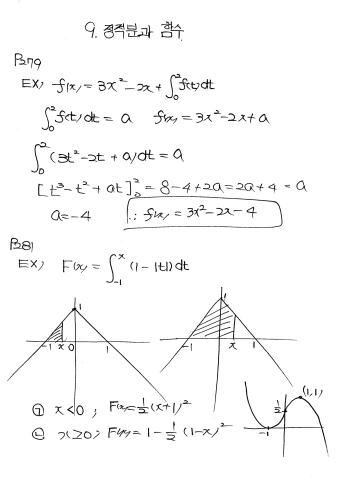 9. 정적분과 함수
P.279
EX) f(x) = 3x² - 2x + ∫₀² f(t)dt
∫₀² f(t)dt = a f(x) = 3x² - 2x + a
∫₀² (3t² - 2t + a)dt = a
[t³ - t² + at]₀² = 8 - 4 + 2a = 2a + 4 = a
a = -4 ∴ f(x) = 3x² - 2x - 4
P.281
EX) F(x) = ∫₋₁ˣ (1 - |t|)dt
1 1
-1 x 0 1 -1 x 1
㉠ x < 0 ; F(x) = ½(x+1)²
㉡ x ≥ 0 ; F(x) = 1 - ½(1-x)²
½ (1,1)
-1